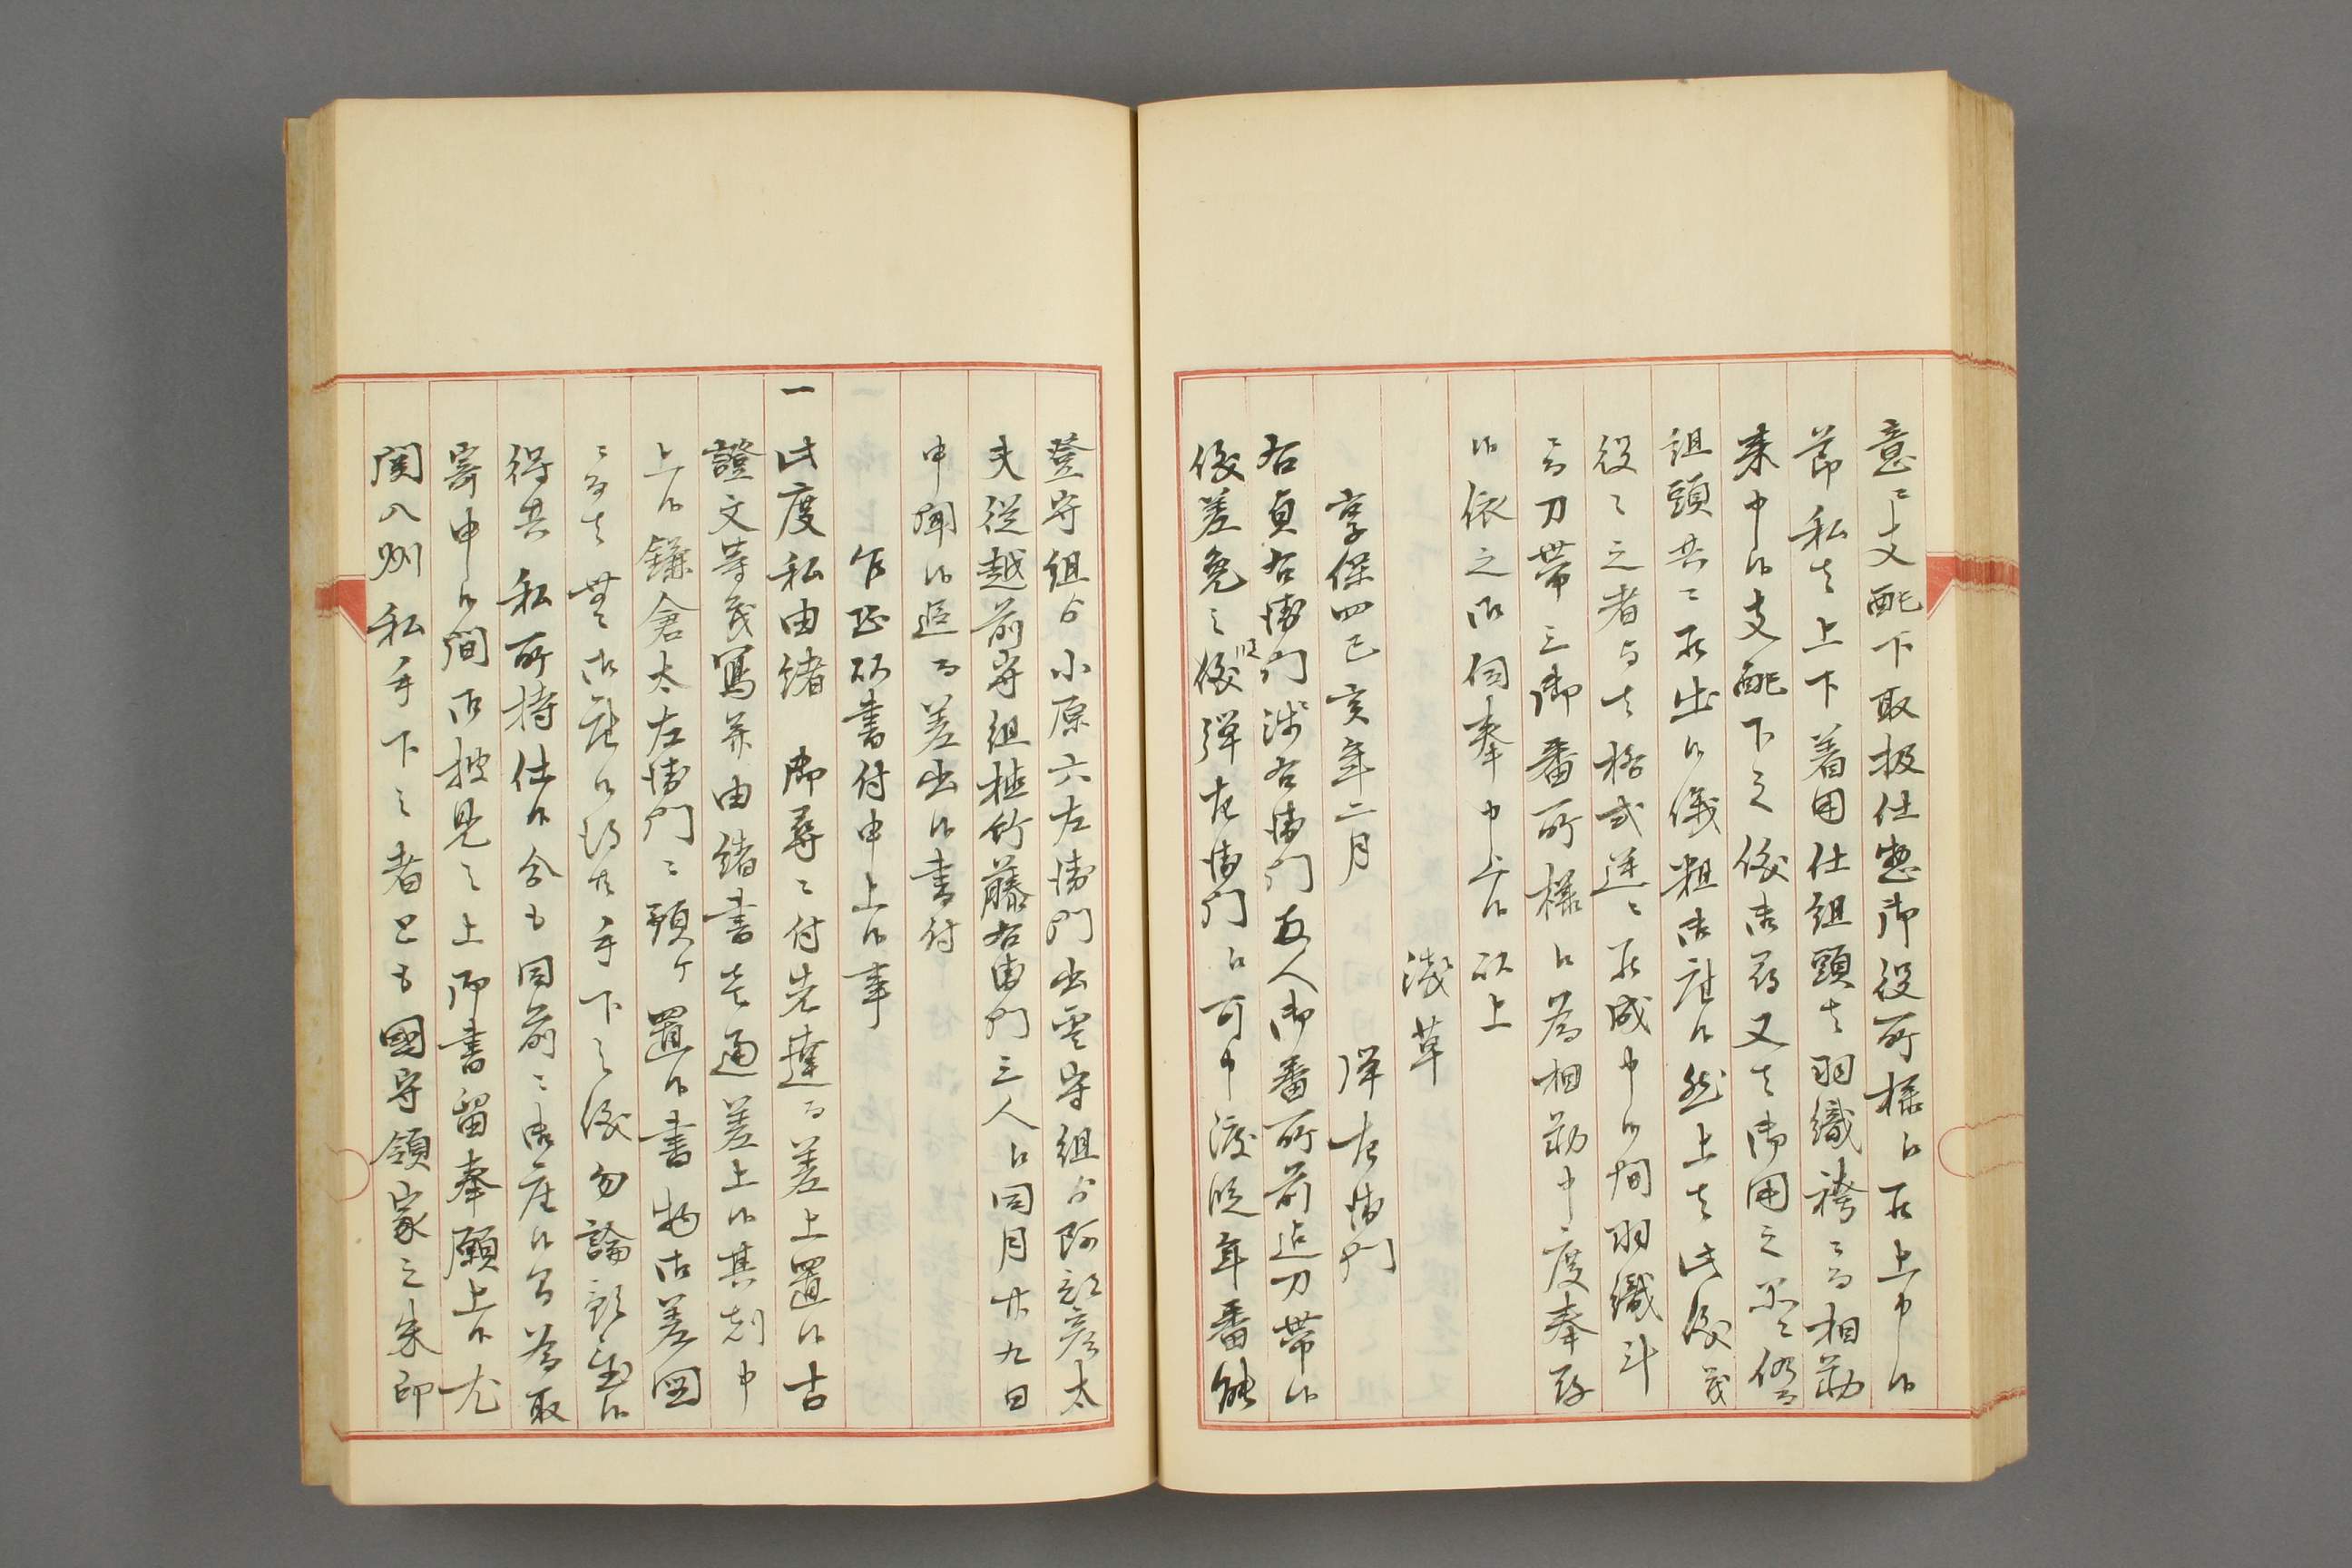 意ニ支配下取扱仕惣御役所様江罷上申候
節私も上下着用仕組頭も羽織袴ニ而相勤
来申候支配下之儀御尋又ハ御用之品ニ
組頭共ニ罷出候儀粗御座候然上ハ此儀茂
役之者与ハ格式違ニ罷成申候間羽織斗
ニ而刀帯し御番所様江為相勤申度奉存
候依之御伺奉申上候以上
浅草
享保四己亥年二月　弾左衛門
右貞右衛門浅右衛門両人御番所前迄刀帯候
儀差免之儀弾左衛門江可申渡段年番能
登守組与小原六左衛門出雲守組与阿部彦太
夫従越前守組植竹藤右衛門三人江同月廿九日
申聞候追而差出候書付
乍恐以書付申上候事
一此度私由緒　御尋ニ付先達而差上置候古
證文等茂写并由緒書壱通差上候其刻申
上候鎌倉太左衛門ニ預ケ置候書物御差図
ニ而も無御座候得共手下之儀勿論
得共私所持仕候今も同前ニ御座候間為取
寄申候間御披見之上御書留奉願上候尤
関八州私手下之者とも国守領家之朱印